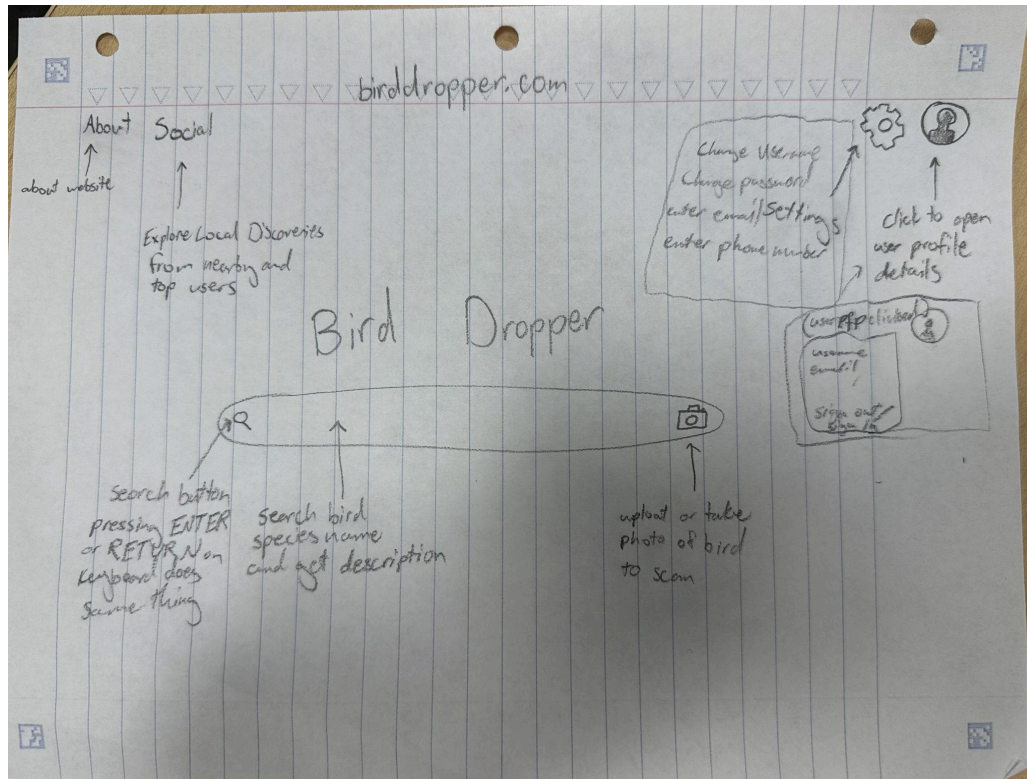 birddropper.com
About Social
about website
Explore Local Discoveries
from nearby and
top users
Change Username
Change password
enter email/
enter phone number
Settings
click to open
user profile
details
user pfp clicked
username
email
sign out/
sign in
Bird Dropper
search button
pressing ENTER
or RETURN on
keyboard does
same thing
search bird
species name
and get description
upload or take
photo of bird
to scan